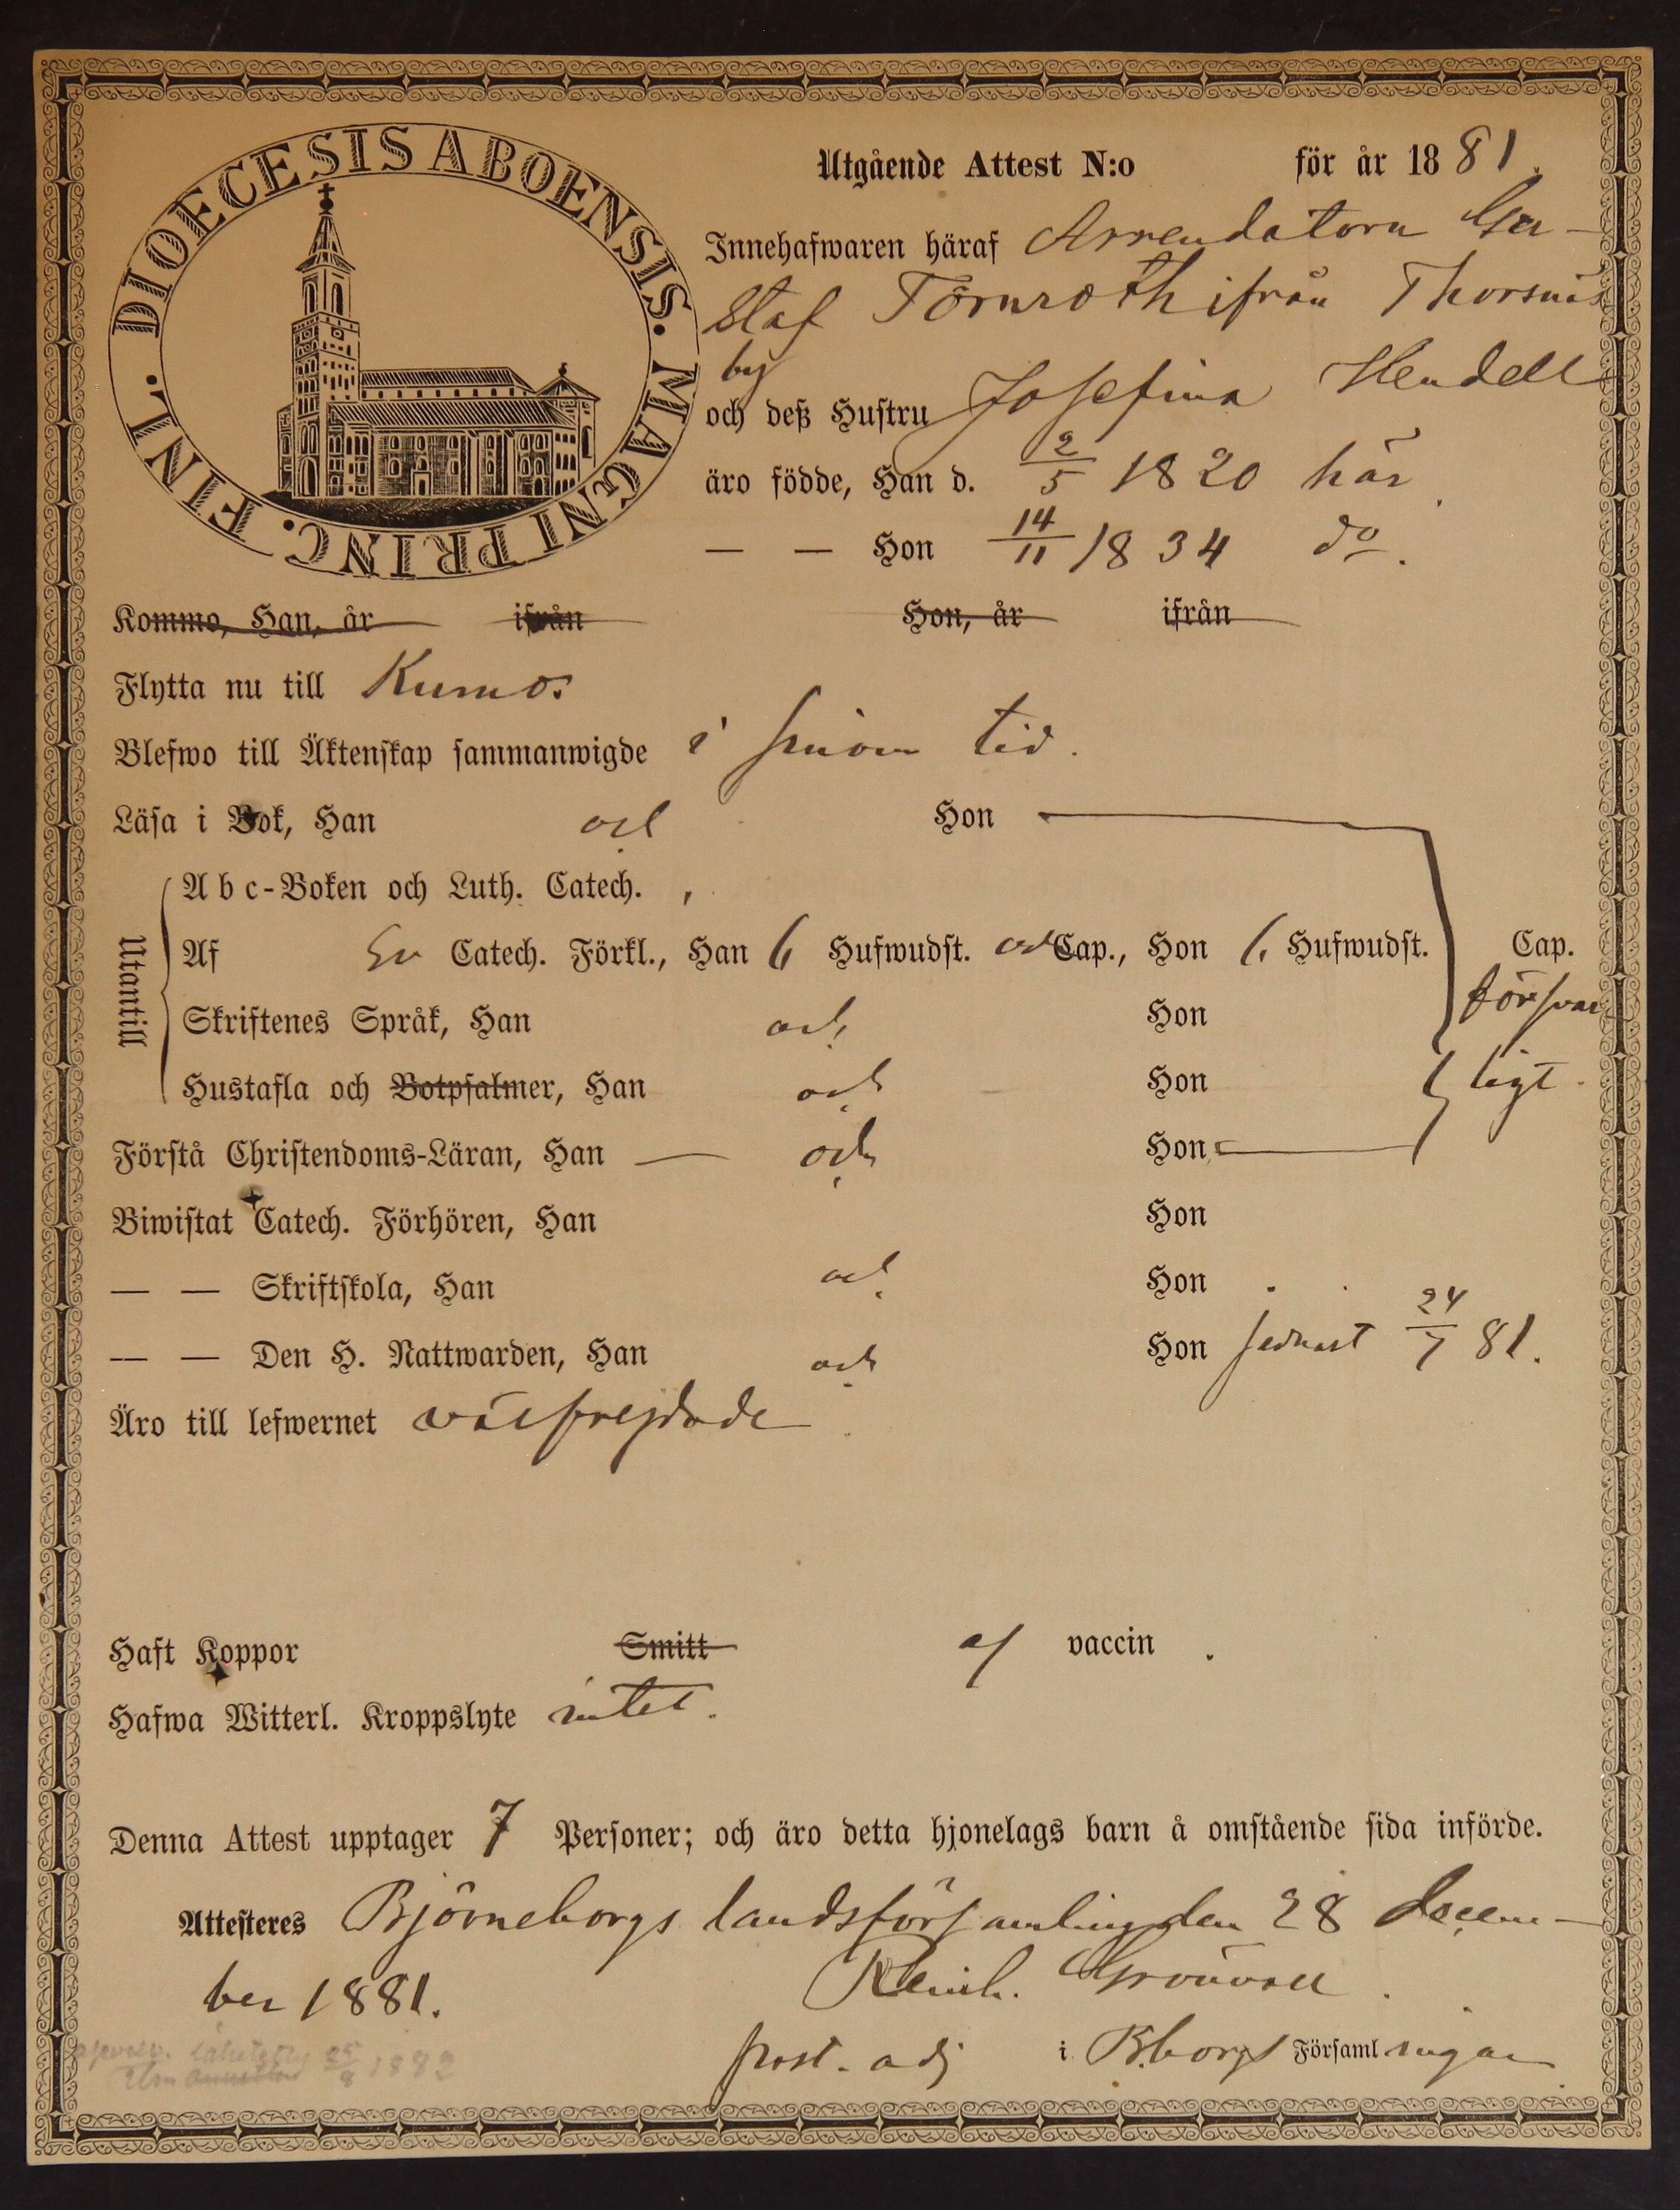 DIOECESIS ABOENSIS. MAGNI PRINC. FINL.
Utgående Attest N:o för år 1881.
Innehafwaren häraf Arrendatorn Gu-
staf Törnroth ifrån Thorsnäs
by
och deß Hustru Josefina Hendell
äro födde, Han d. 2/5 1820 här.
— — Hon 14/11 1834 do.
Kommo, Han, år ifrån Hon, år ifrån
Flytta nu till Kumo.
Blefwo till Äktenskap sammanwigde i sinom tid.
Läsa i Bok, Han och Hon
Utantill
Abc-Boken och Luth. Catech.
Af Sv Catech. Förkl., Han 6 Hufwudst. och Cap., Hon 6 Hufwudst. Cap.
Skriftenes Språk, Han och Hon försvar
Hustafla och Botpsalmer, Han och Hon ligt.
Förstå Christendoms-Läran, Han — och Hon
Biwistat Catech. Förhören, Han Hon
— — Skriftskola, Han och Hon
— — Den H. Nattwarden, Han och Hon sednast 24/7 81.
Äro till lefwernet välfrejdade
Haft Koppor Smitt af vaccin.
Hafwa Witterl. Kroppslyte intet.
Denna Attest upptager 7 Personer; och äro detta hjonelags barn å omstående sida införde.
Attesteres Björneborgs landsförsamling den 28 Decem-
ber 1881. Reinh. Grönvall.
past. adj i B.borgs Församlingar
1882